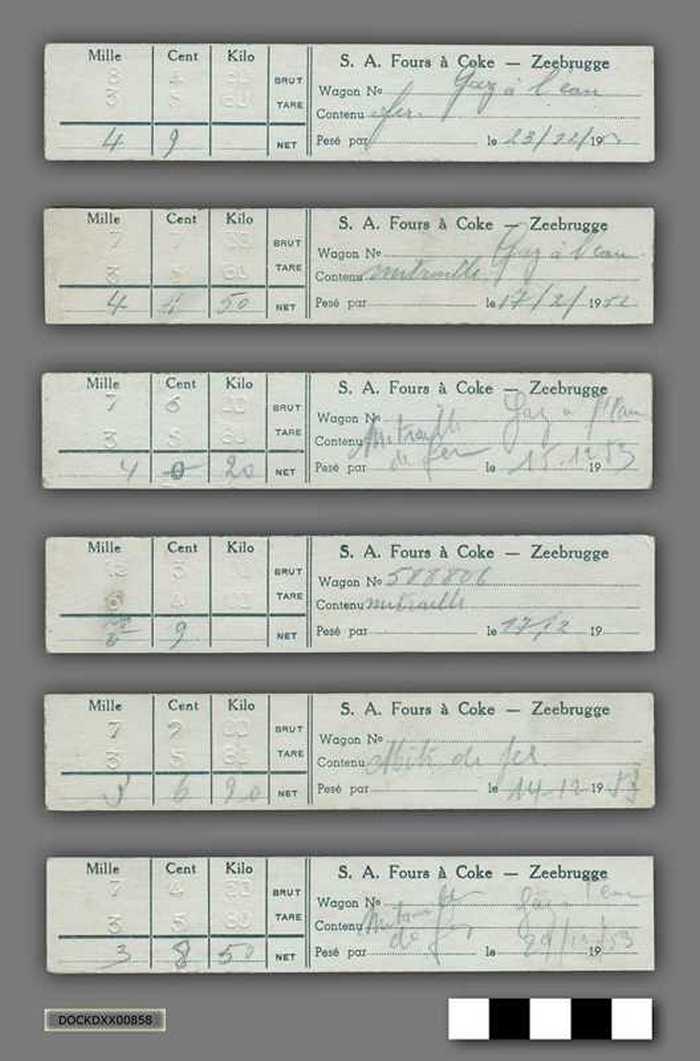 Mille Cent Kilo S. A. Fours à Coke — Zeebrugge
BRUT
Wagon No Gaz à l'eau
TARE
Contenu fer.
4 9 NET Pesé par le 23/12/19
Mille Cent Kilo S. A. Fours à Coke — Zeebrugge
7 BRUT
Wagon No Gaz à l'eau
3 TARE
Contenu mitraille
4 50 NET Pesé par le 17/2/1952
Mille Cent Kilo S. A. Fours à Coke — Zeebrugge
7 6 BRUT
Wagon No Gaz à l'eau
3 5 TARE
Contenu Mitraille
de fer
4 0 20 NET Pesé par le 15.12 1953
Mille Cent Kilo S. A. Fours à Coke — Zeebrugge
3 BRUT
Wagon No 588806
4 TARE
Contenu mitraille
9 NET Pesé par le 17/12 19
Mille Cent Kilo S. A. Fours à Coke — Zeebrugge
7 2 BRUT
Wagon No
3 5 TARE
Contenu Mit. de fer
3 6 90 NET Pesé par le 14-12-1953
Mille Cent Kilo S. A. Fours à Coke — Zeebrugge
7 4 BRUT
Wagon No Gaz l'eau
3 5 80 TARE
Contenu
de fer
3 8 50 NET Pesé par le 29/12/53 19
DOCKDXX00858